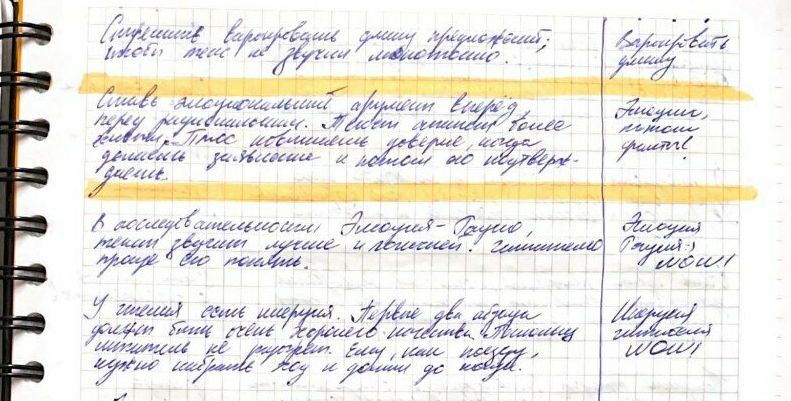 Стремись варьировать длину предложений,
чтобы текст не звучал монотонно.
Варьировать
длину
Ставь эмоциональный аргумент вперёд,
перед рациональным. Текст более
Плюс повышаешь доверие, когда
делаешь заявление и потом его подтверж-
даешь.
Эмоции,
потом
факты!
В последовательности Эмоция-Рацио,
текст звучит лучше и логичней. Читателю
проще его понять.
Эмоция
Рацио
WOW!
У чтения есть инерция. Первые два абзаца
должны быть очень хорошего качества.
читатель не Ему, как поезду,
нужно набрать ход и дойти до конца.
Инерция
читателя
WOW!